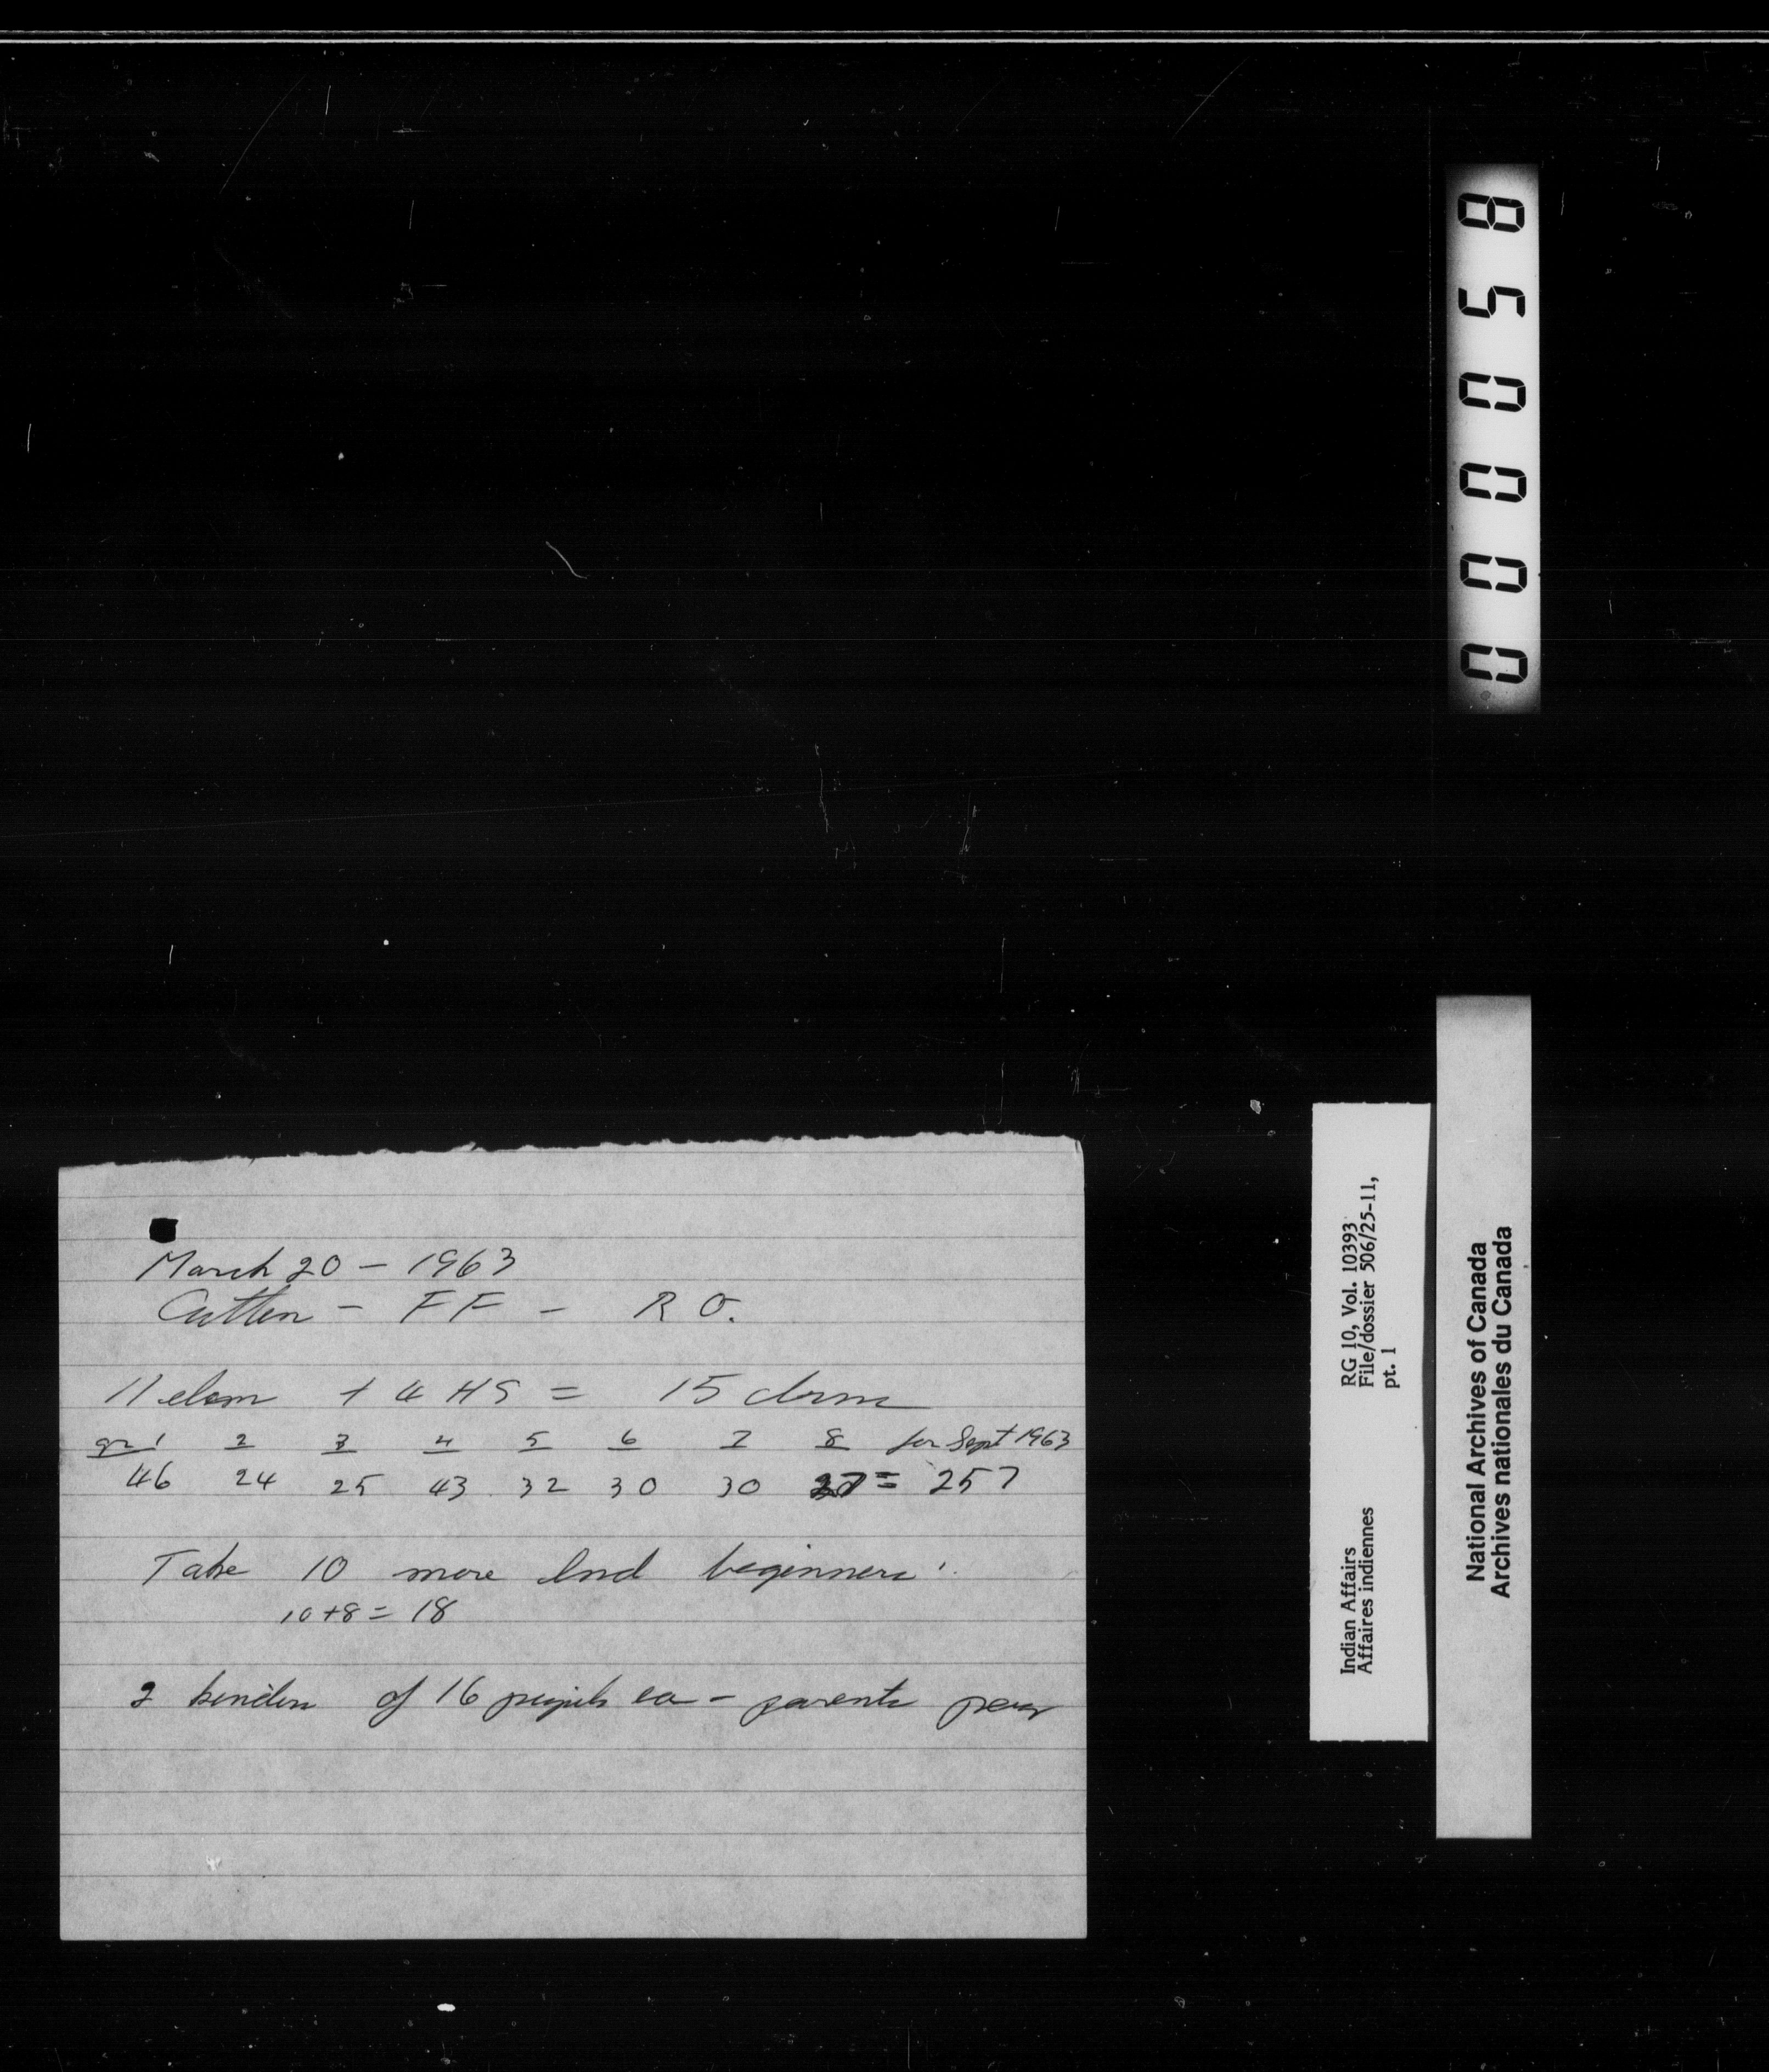 March 20 - 1963
Cutten - FF - R O.
11 elem + 4 HS = 15 clrms
gr 1 2 3 4 5 6 7 8 for Sept 1963
46 24 25 43 32 30 30 27 = 257
Take 10 more Ind beginners
10+8 = 18
2 kinders of 16 pupils ea - parents pay
000058
Indian Affairs RG 10, Vol. 10393
Affaires indiennes File/dossier 506/25-11,
pt. 1
National Archives of Canada
Archives nationales du Canada